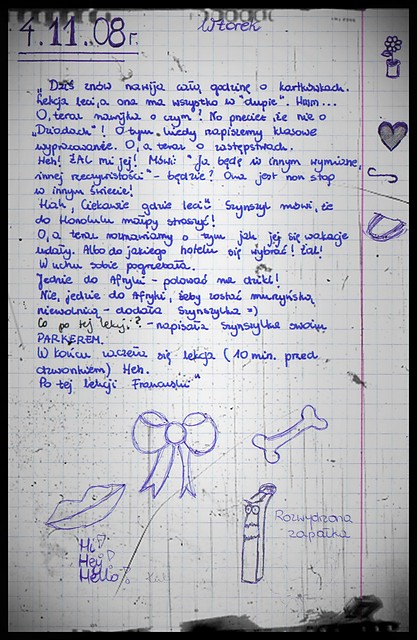 4.11.08r. Wtorek
"Dziś znów nawija całą godzinę o kartkówkach.
Lekcja leci, a ona ma wszystko w "dupie". Hmm...
O, teraz nawijka o czym? No przecież, że nie o
"Dziadach"! O tym kiedy napiszemy klasowe
wypracowanie. O, a teraz o zastępstwach.
Heh! ŻAL mi jej! Mówi: "Ja będę w innym wymiarze,
innej rzeczywistości" - będzie? Ona jest non stop
w innym świecie!
Hah, Ciekawie gdzie leci? Szynszyl mówi, że
do Honolulu małpy straszyć!
O, a teraz rozmawiamy o tym jak jej się wakacje
udały. Albo do jakiego hotelu się wybrać! Żal!
W uchu sobie pogrzebała.
Jedzie do Afryki - polować na dziki!
Nie, jedzie do Afryki, żeby zostać murzyńską
niewolnicą - dodała Szynszylka =)
Co po tej lekcji? - napisała Szynszylka swoim
PARKEREM.
W końcu zaczęła się lekcja (10 min. przed
dzwonkiem) Heh.
Po tej lekcji Francuski"
Rozwydrzona
zapałka
Hi!
Hej!
Hello!